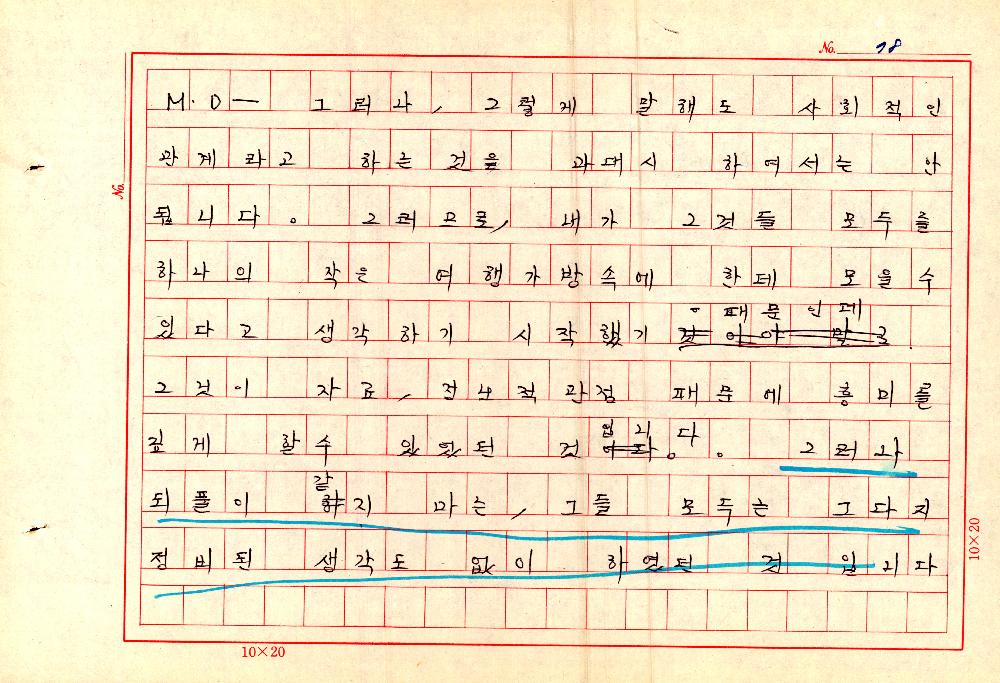 No. 78
M.D— 그러나, 그렇게 말해도 사회적인
관계라고 하는 것을 과대시 하여서는 안
됩니다. 그러므로, 내가 그것들 모두를
하나의 작은 여행가방속에 한데 모을수
있다고 생각하기 시작했기 때문인데
그것이 자료, 전보적관점 때문에 흥미를
깊게 할수 있었던 것 입니다. 그러나
되풀이 같지 마는, 그들 모두는 그다지
정비된 생각도 없이 하였던 것 입니다
No.
10×20
10×20